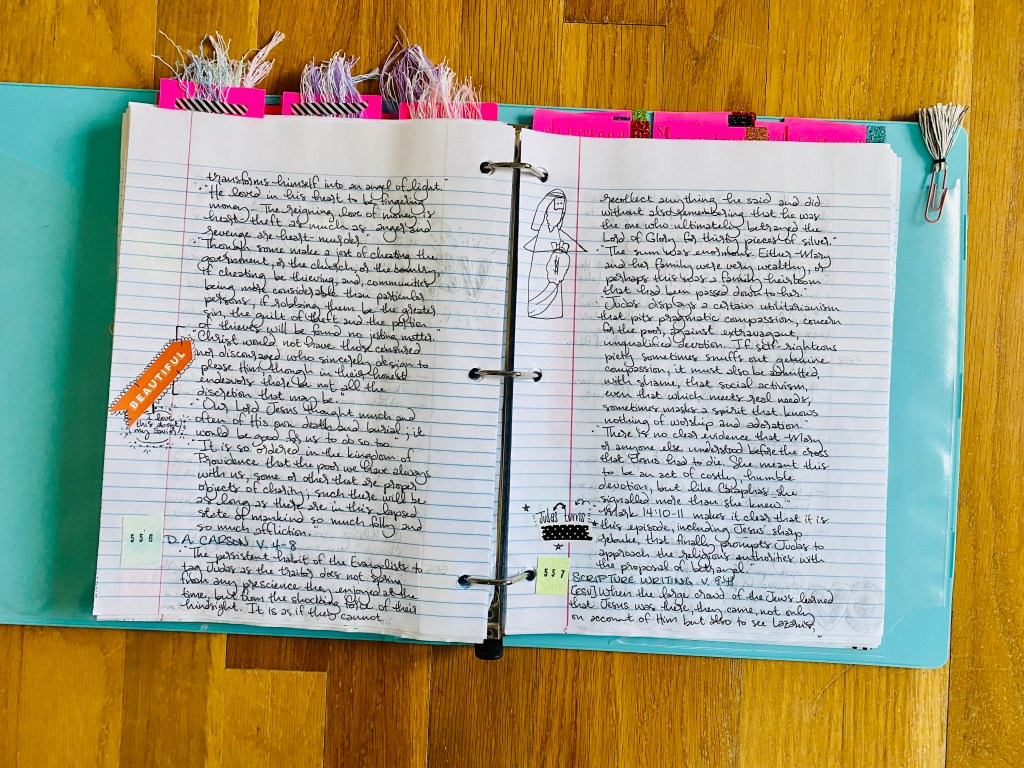 transforms himself into an angel of light."
"He loved in his heart to be fingering
money. The reigning love of money is
heart-theft as much as anger and
revenge are heart murder."
"Though some make a jest of cheating the
government, or the church, or the country,
if cheating be thieving, and, communities
being more considerable than particular
persons, if robbing them be the greater
sin, the guilt of theft and the portion
of thieves will be found no jesting matter."
"Christ would not have those censured
nor discouraged who sincerely design to
please Him, though in their honest
endeavors there be not all the
discretion that may be."
BEAUTIFUL
I love
this about
my Savior!
"Our Lord Jesus thought much and
often of His own death and burial; it
would be good for us to do so too."
"It is so ordered in the kingdom of
Providence that the poor we have always
with us, some or other that are proper
objects of charity; such there will be
as long as there are in this lapsed
state of mankind so much folly and
so much affliction.
556
D.A. CARSON V. 4-8
"The persistent habit of the Evangelists to
tag Judas as the traitor does not spring
from any prescience they enjoyed at the
time, but from the shocking force of their
hindsight. It is as if they cannot
recollect anything he said and did
without also remembering that he was
the one who ultimately betrayed the
Lord of Glory for thirty pieces of silver."
"The sum was enormous. Either Mary
and her family were very wealthy, or
perhaps this was a family heirloom
that had been passed down to her."
"Judas displays a certain utilitarianism
that pits pragmatic compassion, concern
for the poor, against extravagant,
unqualified devotion. If self-righteous
piety sometimes snuffs out genuine
compassion, it must also be admitted,
with shame, that social activism,
even that which meets real needs,
sometimes masks a spirit that knows
nothing of worship and adoration."
"There is no clear evidence that Mary
or anyone else understood before the cross
that Jesus had to die. She meant this
to be an act of costly, humble
devotion, but like Caiaphas she
signalled more than she knew."
"Mark 14:10-11 makes it clear that it is
this episode, including Jesus' sharp
rebuke, that finally prompts Judas to
approach the religious authorities with
the proposal of betrayal."
Judas turns
557
SCRIPTURE WRITING V. 9-11
[ESV] When the large crowd of the Jews learned
that Jesus was there, they came, not only
on account of Him but also to see Lazarus,